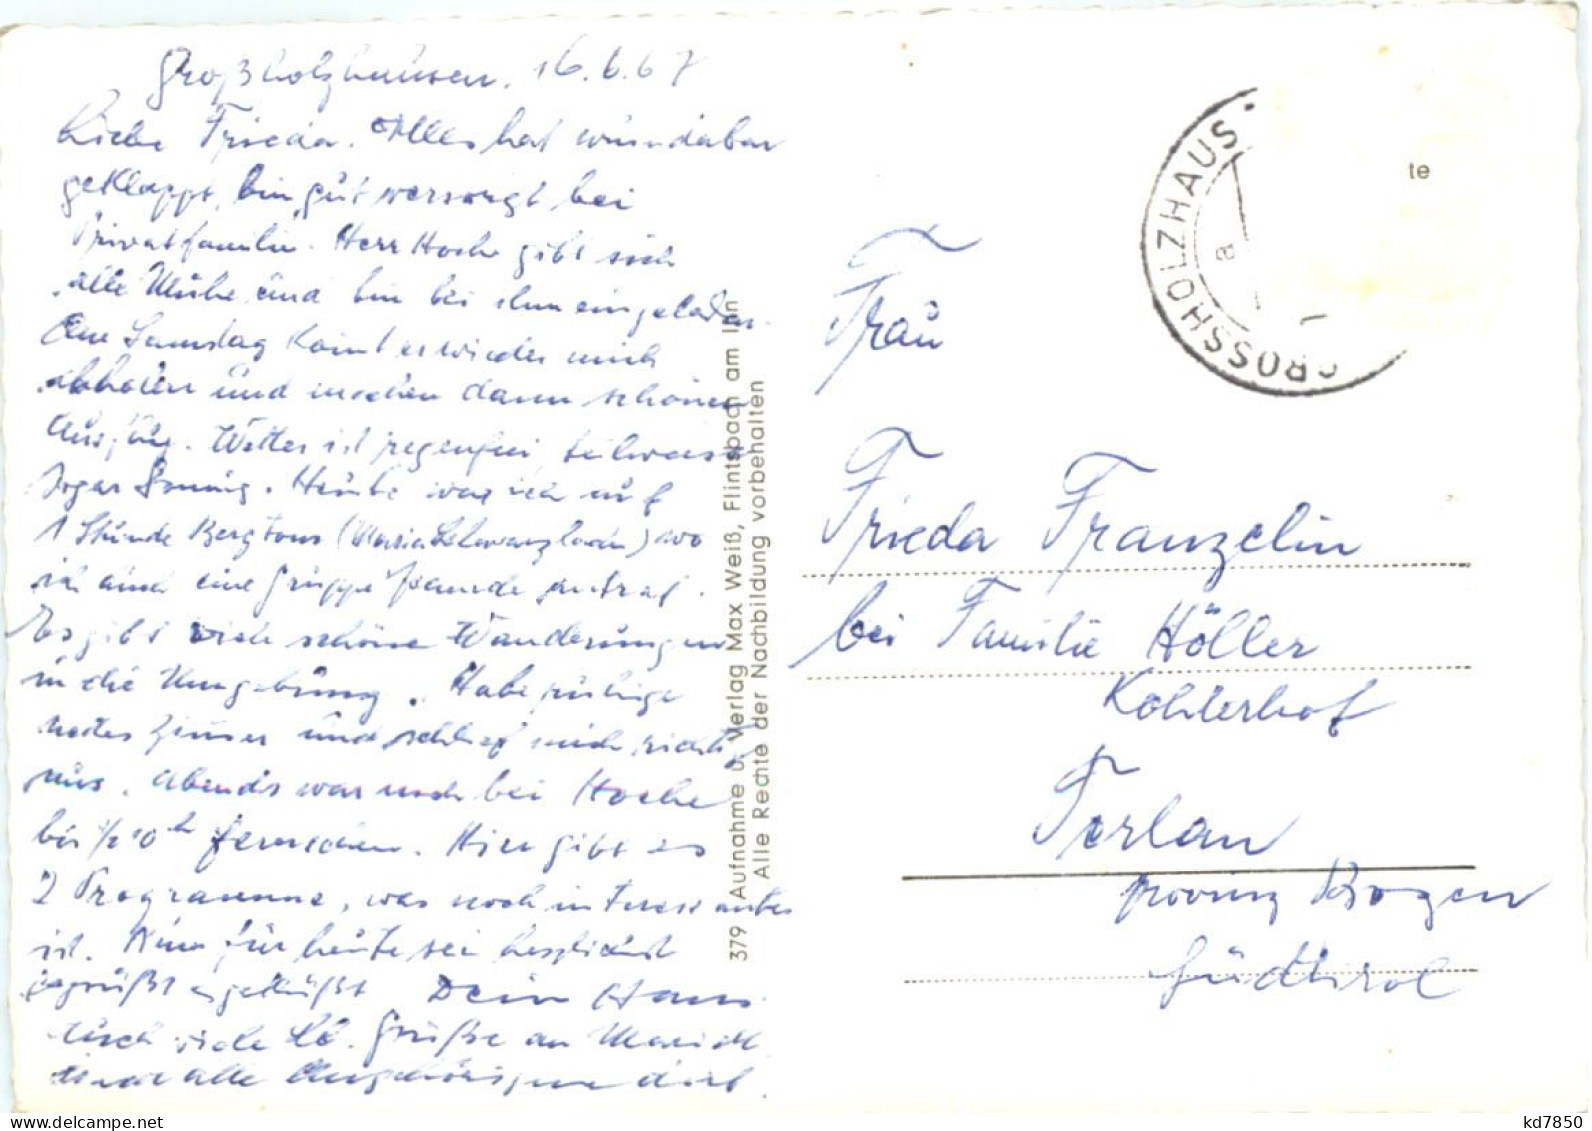 Großholzhausen, 16.6.67
Liebe Frieda. Alles hat wundabar
geklappt, bin gut versorgt bei
Privatfamilie. Herr Hoche gibt sich
alle Mühe und bin bei ihm eingeladen.
Am Samstag kommt er wieder mich
abholen und machen dann schönen
Ausflug. Wetter ist regenfrei, teilweise
sogar Sonnig. Heute war ich auf
1 Stunde Bergtour (Maria Schwarzlack) wo
ich auch eine Gruppe Fremde antraf.
Es gibt viele schöne Wanderungen
in die Umgebung. Habe ruhige
nettes Zimmer und schlief mich richtig
aus. Abends war noch bei Hoche
bis 1/2 10h fernsehen. Hier gibt es
2 Programme, was noch interessantes
ist. Nun für heute sei herzlichst
gegrüßt u geküßt Dein Hans
Auch viele lb. Grüße an Mariedl
und alle Angehörigen dort.
379 Aufnahme u. Verlag Max Weiß, Flintsbach am Inn
Alle Rechte der Nachbildung vorbehalten
GROSSHOLZHAUS
a
te
Frau
Frieda Franzelin
bei Familie Höller
Kohlerhof
Terlan
Provinz Bozen
Südtirol
kd7850